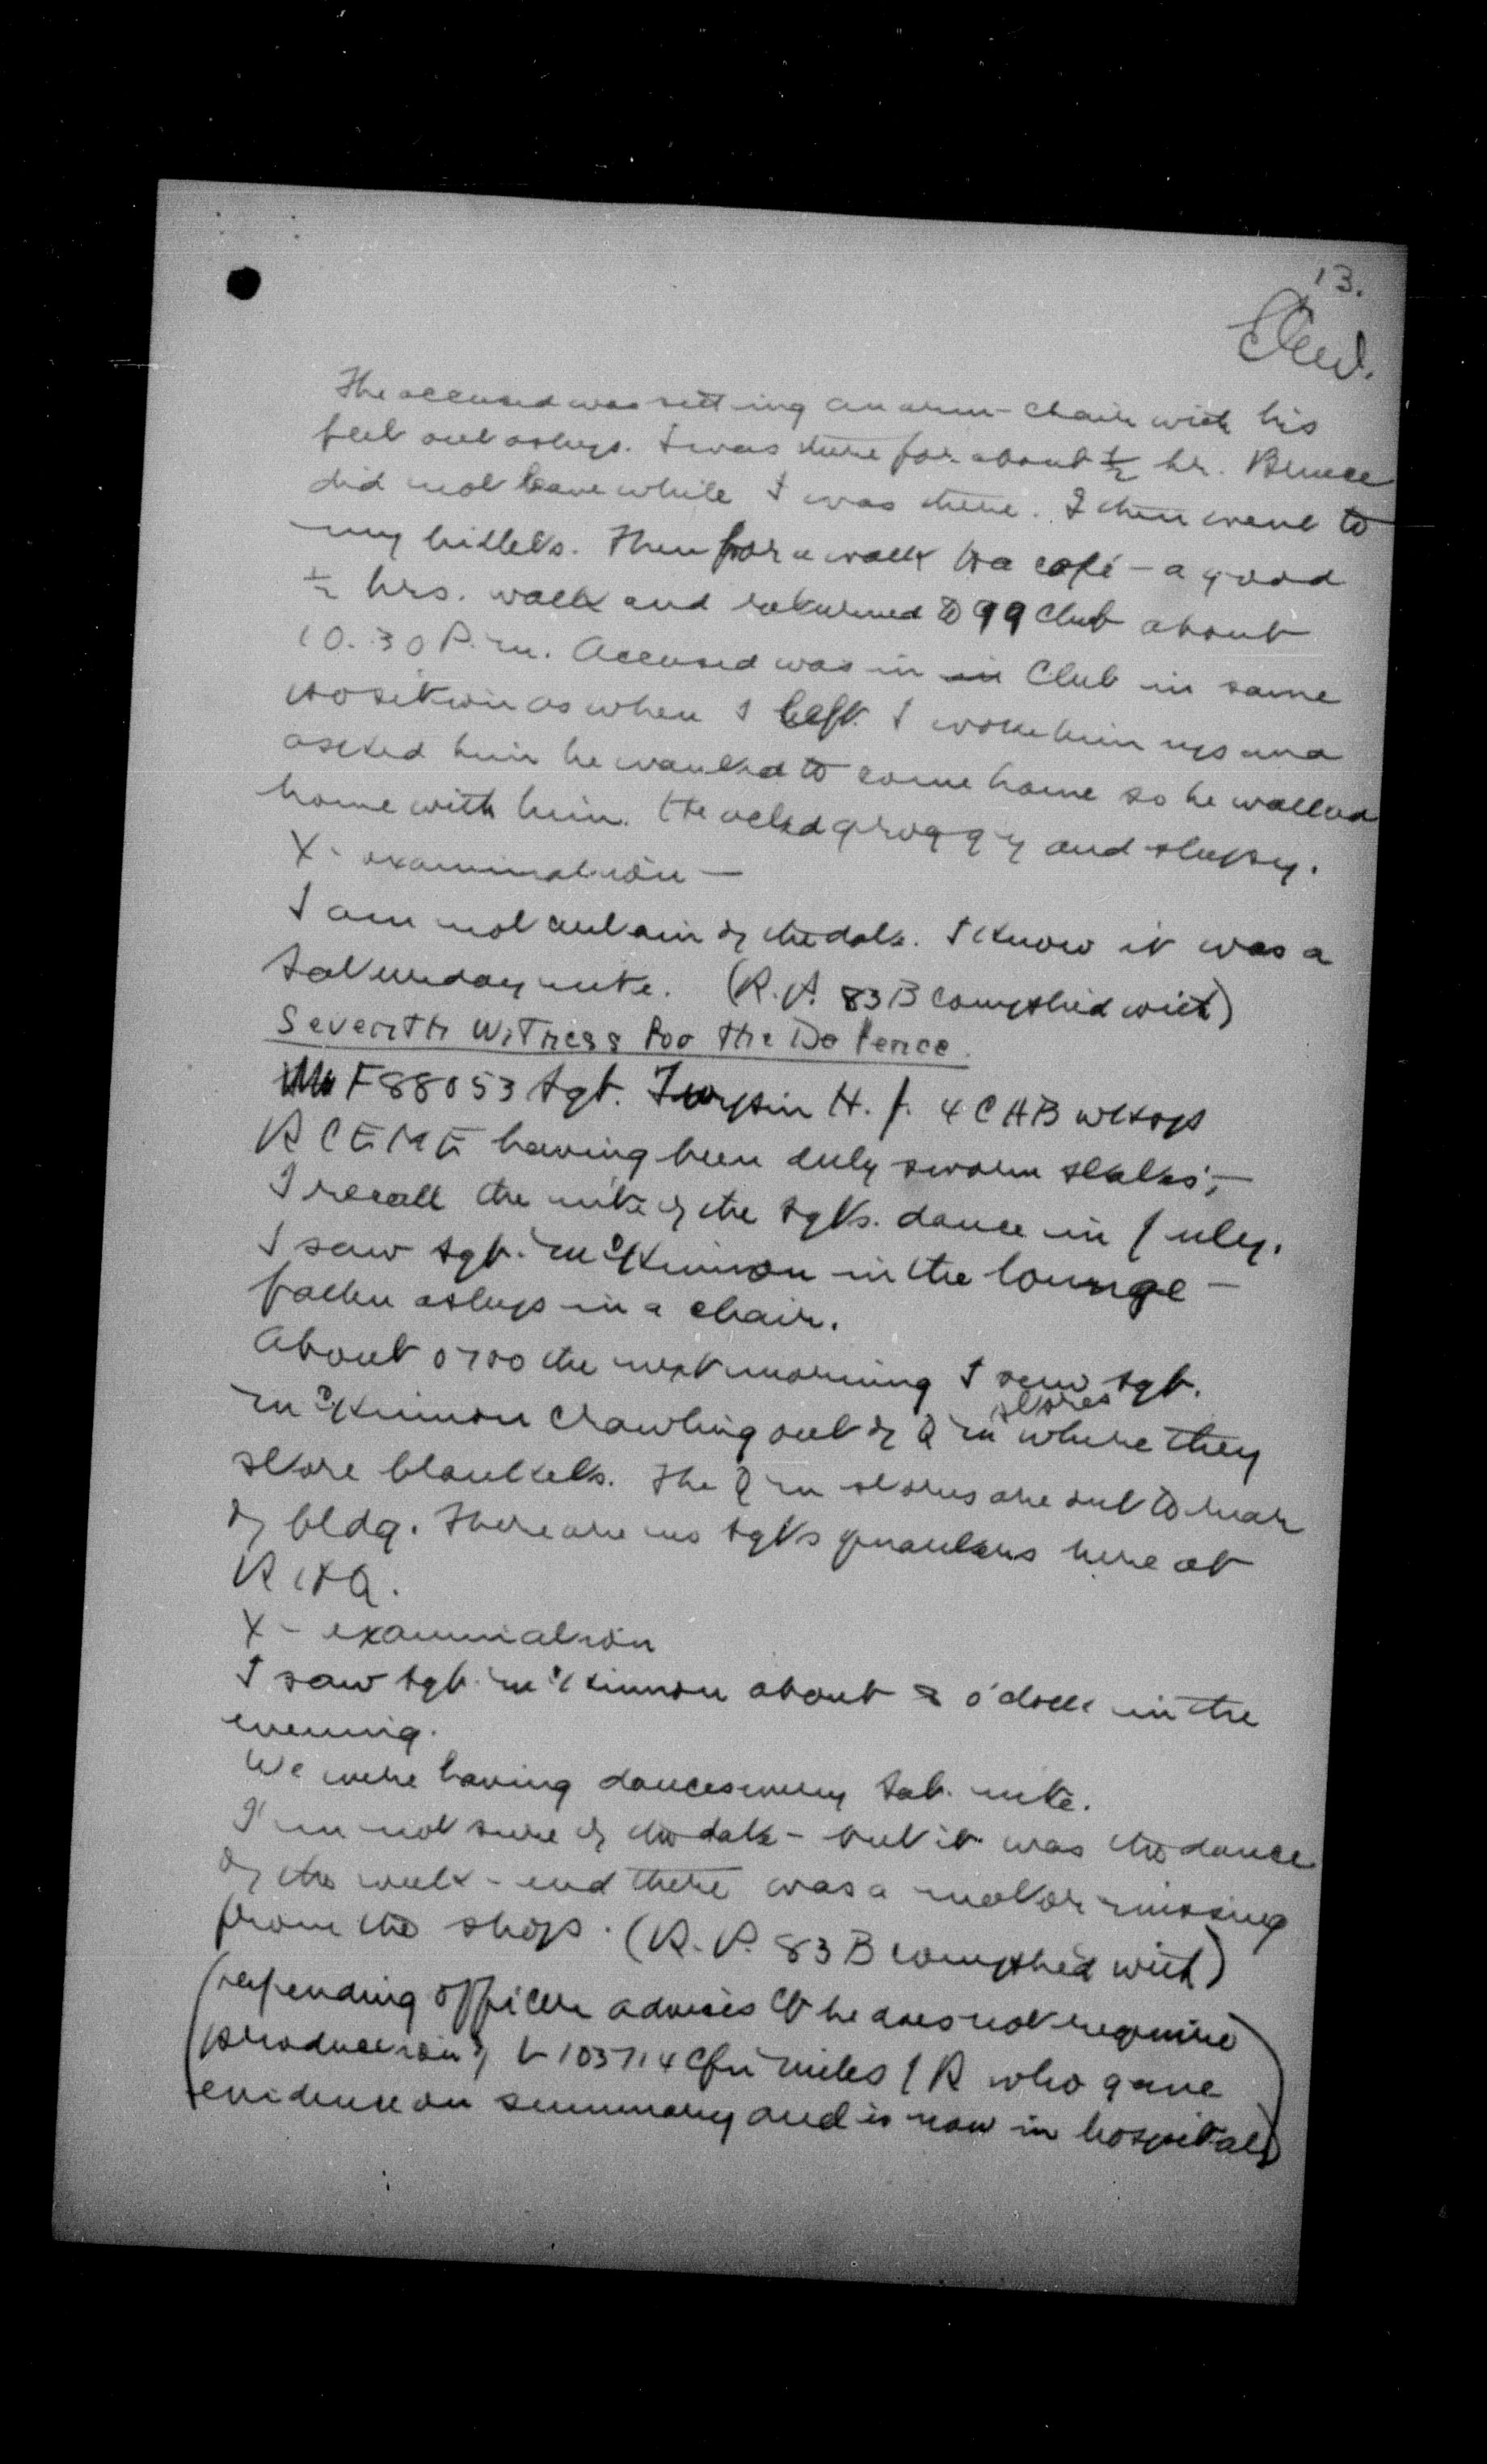 13.
The accused was sitting an arm-chair with his
feet out asleep. I was there for about ½ hr. Bruce
did not leave while I was there. I then went to
my billets. Then for a walk to a café - a good
½ hrs. walk and returned to 99 Club about
10.30 P.m. Accused was in in Club in same
position as when I left. I woke him up and
asked him he wanted to come home so he walked
home with him. He acted groggy and sleepy.
X - examination —
I am not certain of the date. I know it was a
Saturday nite. (R.P. 83B complied with)
Seventh Witness for the Defence.
F88053 Sgt. H.J. 4 CAB wksps
RCEME having been duly sworn states;-
I recall the nite of the Sgts. dance in July.
I saw Sgt. McKinnon in the lounge -
fallen asleep in a chair.
About 0700 the next morning I saw Sgt.
McKinnon crawling out of Q M stores where they
store blankets. The Q M stores are out to rear
of bldg. There are no Sgts quarters here at
X - examination
I saw Sgt. McKinnon about 8 o'clock in the
evening.
We were having dances every Sat. nite.
I'm not sure of the date - but it was the dance
of the week-end there was a motor missing
from the shops. (R.P. 83B complied with)
(Defending officer advises Ct he does not require
production of L 103714 Cfn Miles J R who gave
evidence on summary and is now in hospital)